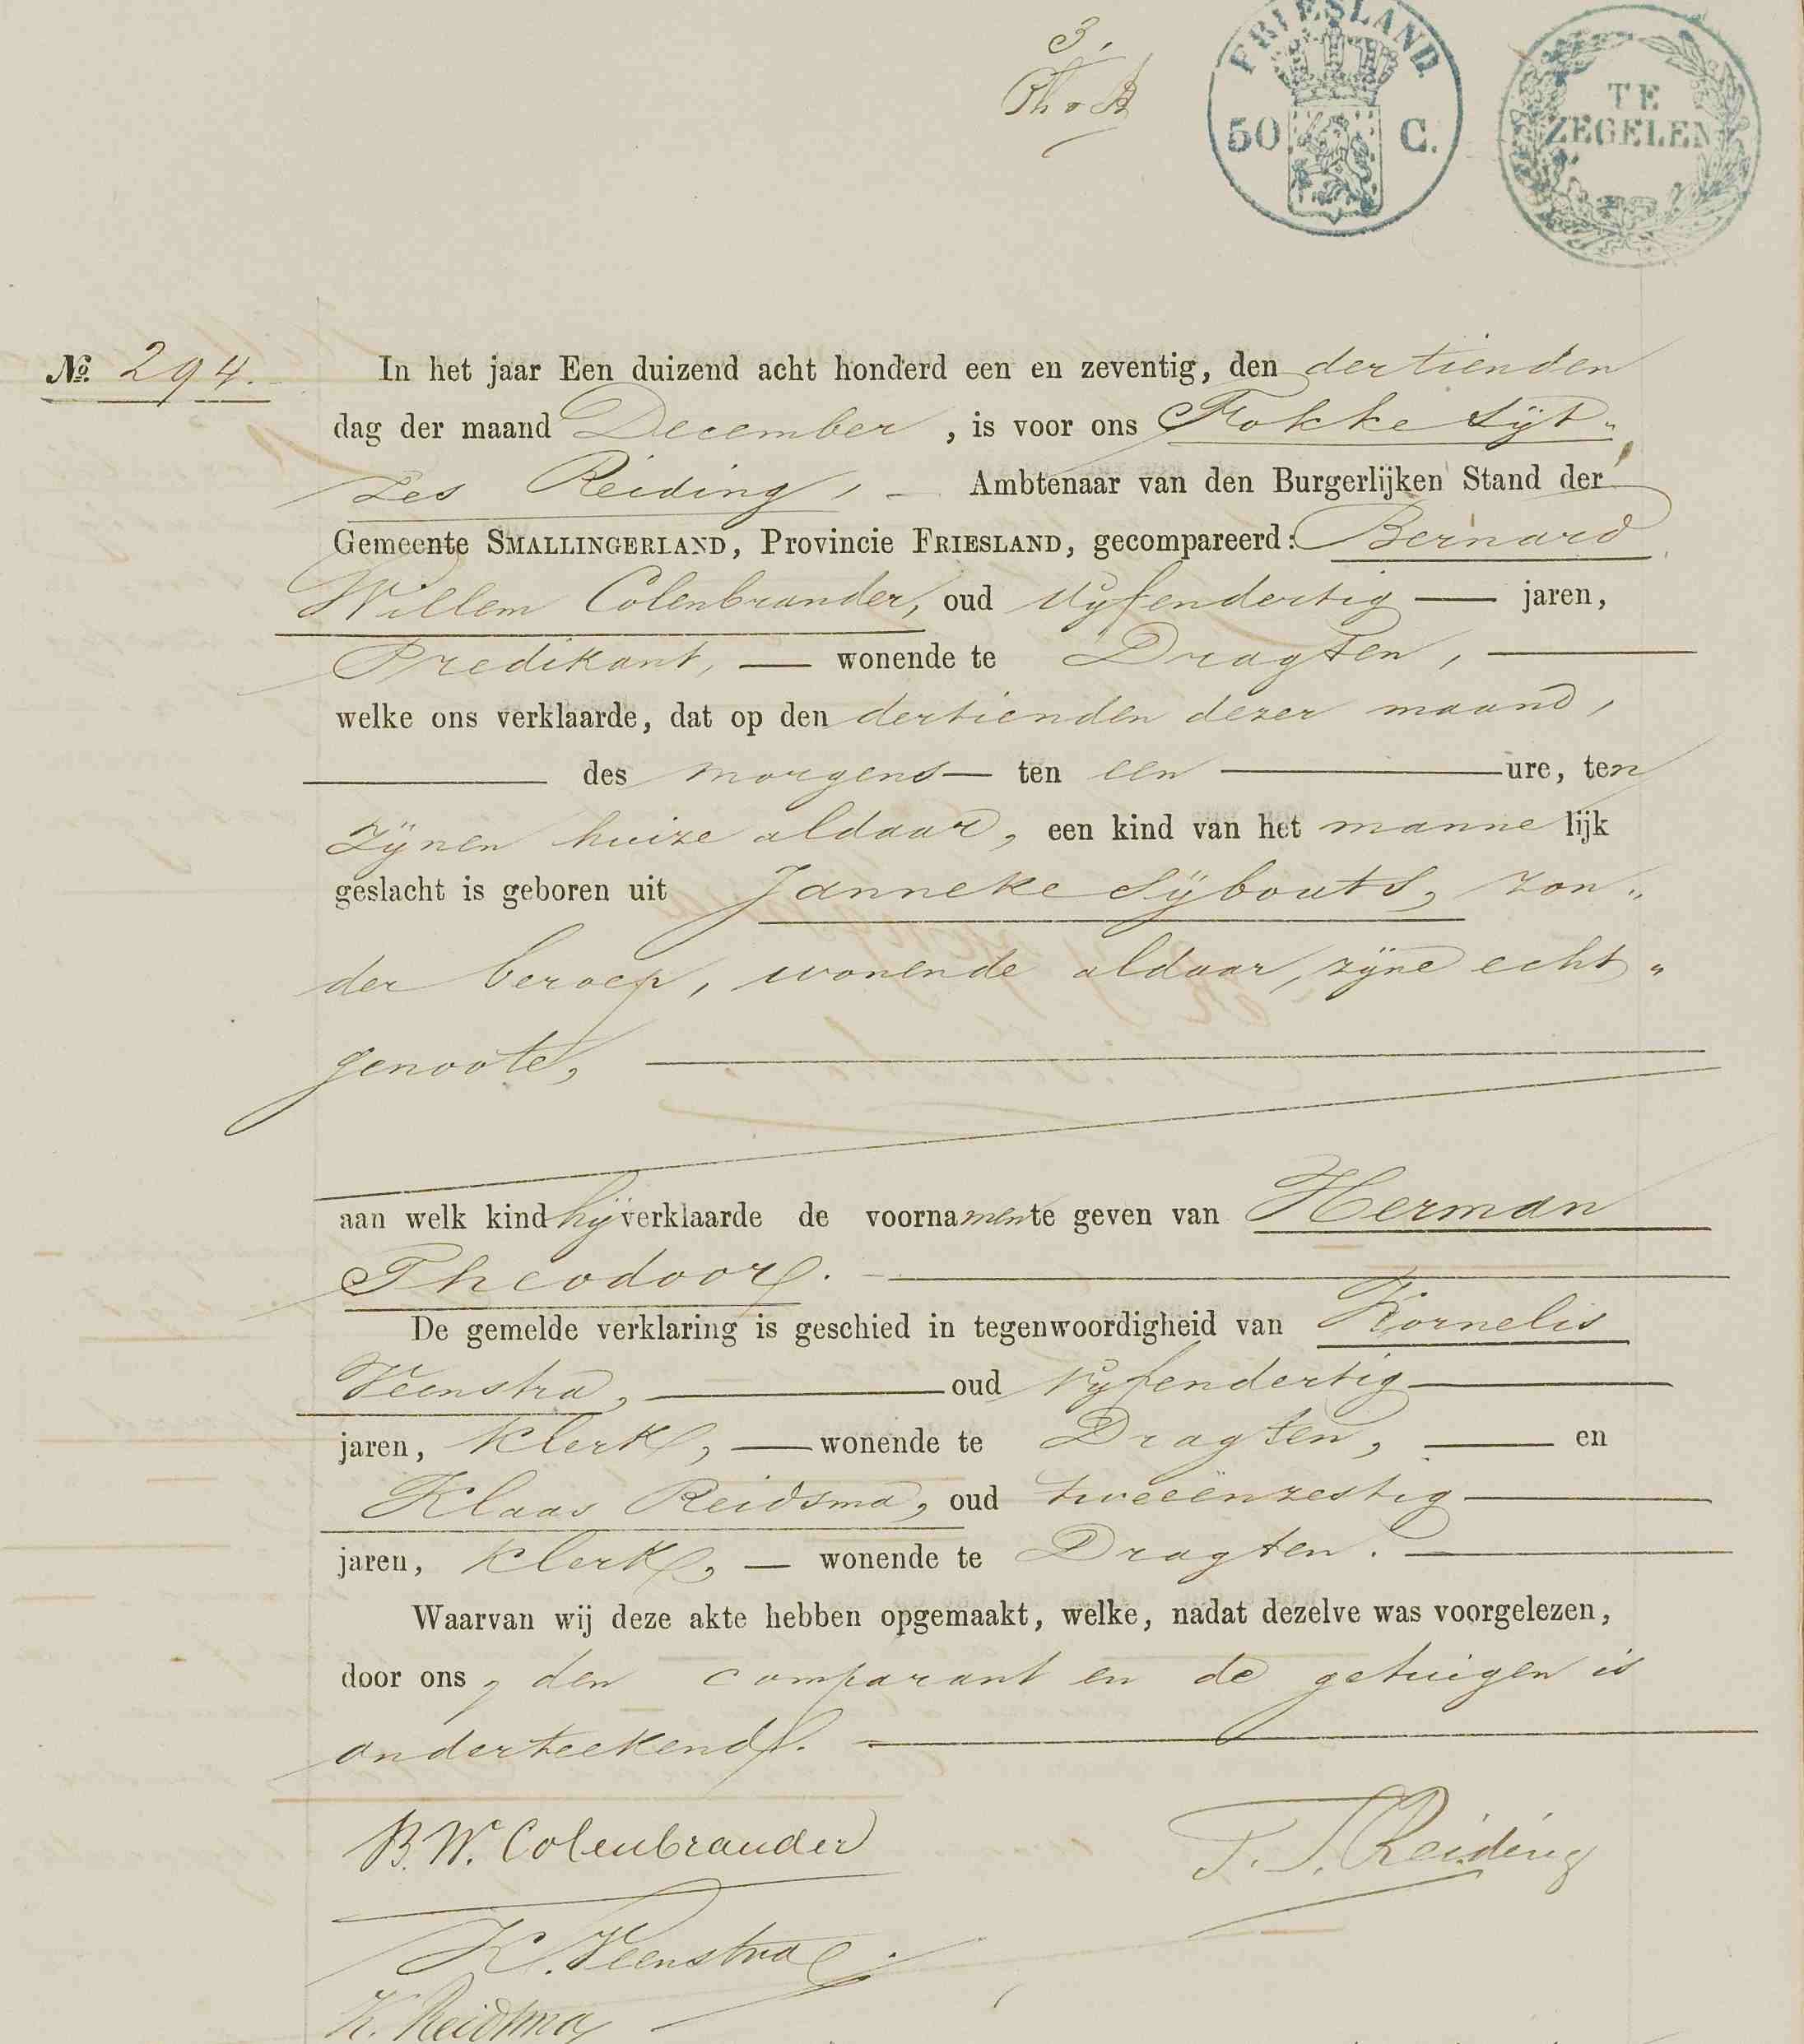 3,
FRIESLAND
50 C.
TE
ZEGELEN
No. 294.
In het jaar Een duizend acht honderd een en zeventig, den dertienden
dag der maand December, is voor ons Fokke Sijt„
zes Reiding, — Ambtenaar van den Burgerlijken Stand der
Gemeente SMALLINGERLAND, Provincie FRIESLAND, gecompareerd: Bernard
Willem Colenbrander, oud vijfendertig — jaren,
Predikant, — wonende te Dragten, —
welke ons verklaarde, dat op den dertienden dezer maand,
— des morgens — ten een — ure, ten
zijnen huize aldaar, een kind van het mannelijk
geslacht is geboren uit Janneke Sijbouts, zon„
der beroep, wonende aldaar, zijne echt„
genoote, —
aan welk kind hij verklaarde de voornamen te geven van Herman
Theodoor. —
De gemelde verklaring is geschied in tegenwoordigheid van Kornelis
Veenstra, — oud vijfendertig —
jaren, klerk, — wonende te Dragten, — en
Klaas Reidsma, oud tweeënzestig —
jaren, klerk, — wonende te Dragten. —
Waarvan wij deze akte hebben opgemaakt, welke, nadat dezelve was voorgelezen,
door ons, den comparant en de getuigen is
onderteekend. —
B. W. Colenbrander
F. S. Reiding
K. Veenstra
K. Reidsma